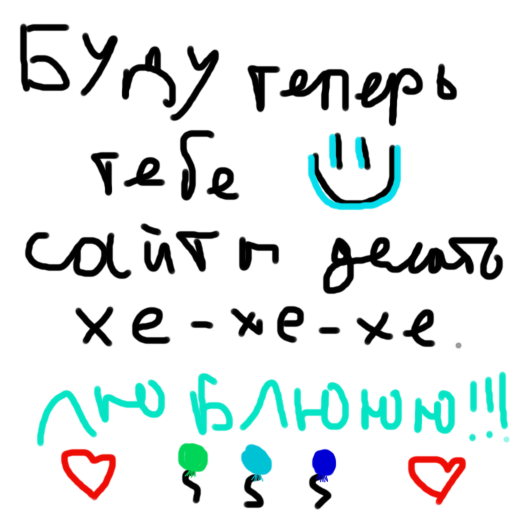 Буду теперь
тебе
сайты делать
хе-хе-хе.
ЛЮБЛЮЮЮ!!!